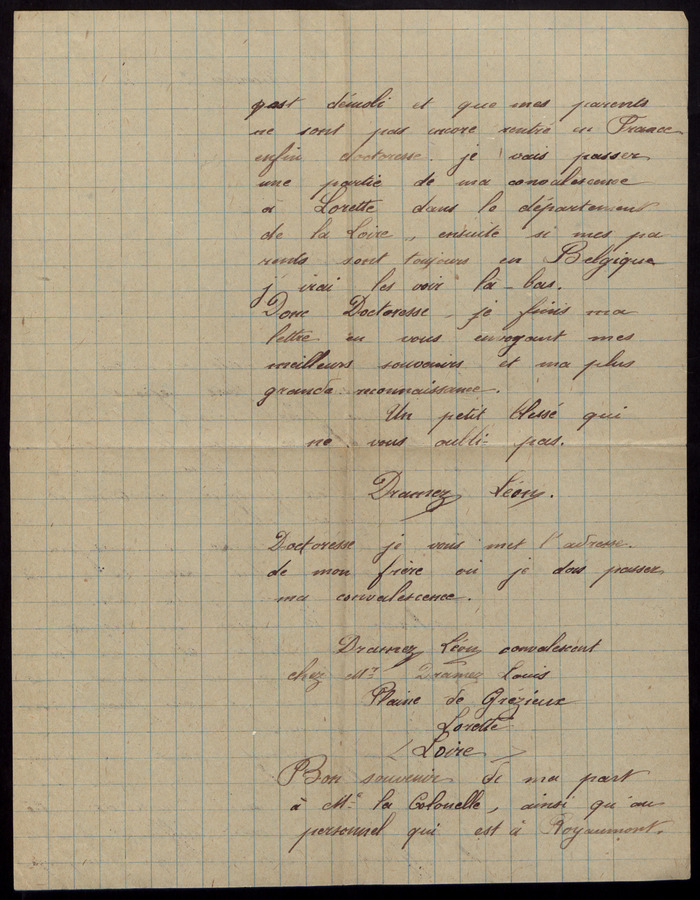 qest démoli et que mes parents
ne sont pas encore rentré en France
enfin doctoresse je vais passer
une partie de ma convalescence
à Lorette dans le département
de la Loire, ensuite si mes pa
rents sont toujours en Belgique
j'irai les voir là-bas.
Donc Doctoresse je finis ma
lettre en vous envoyant mes
meilleurs souvenirs et ma plus
grande reconnaissance.
Un petit blessé qui
ne vous oubli pas.
Dramez Léon.
Doctoresse je vous met l'adresse
de mon frère où je dois passer
ma convalescence.
Dramez Léon convalescent
chez Mr Dramez Louis
Plaine de Grézieux
Lorette
(Loire)
Bon souvenir de ma part
à Me la Colonelle, ainsi qu'au
personnel qui est à Royaumont.